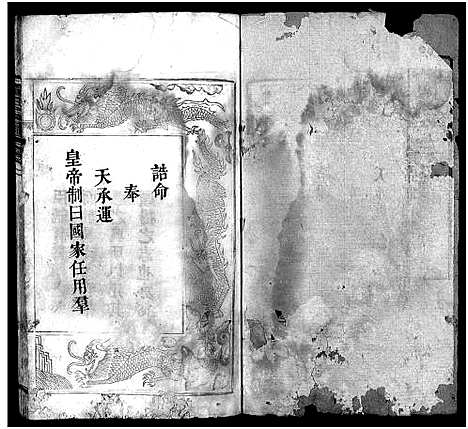 誥命
奉
天承運
皇帝制曰國家任用羣